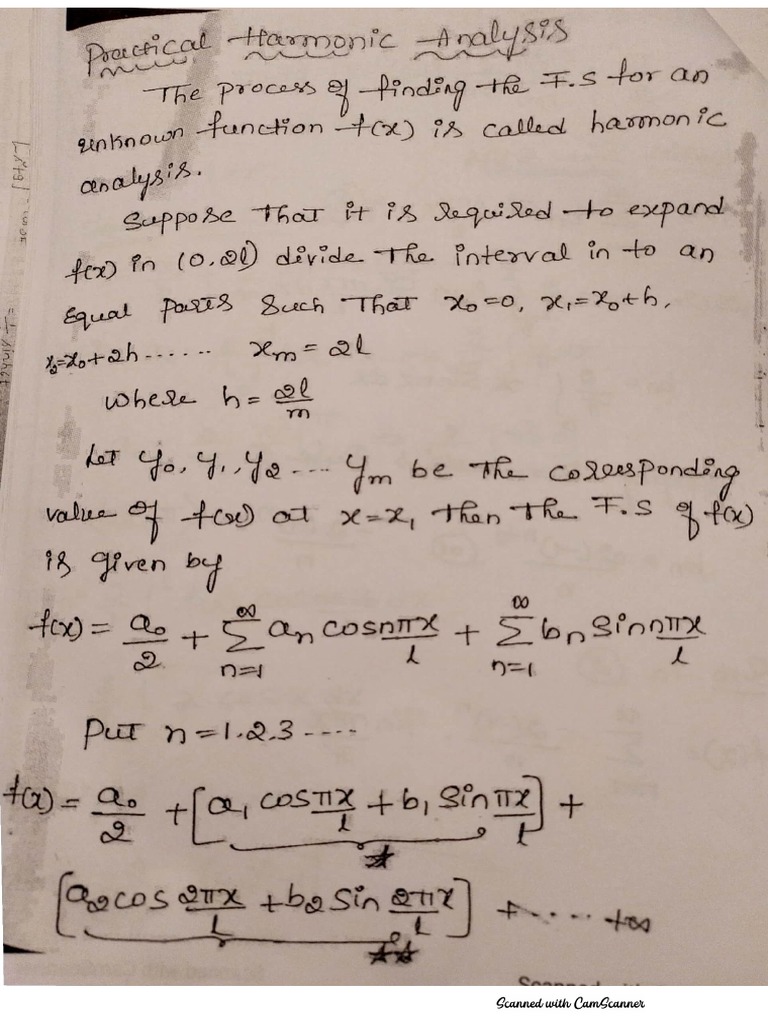 Practical Harmonic Analysis
The process of finding the F.S for an
unknown function f(x) is called harmonic
analysis.
Suppose that it is required to expand
f(x) in (0,2l) divide the interval in to an
Equal parts such that x₀=0, x₁=x₀+h,
x₂=x₀+2h ...... xₘ = 2l
where h = 2l/m
Let y₀, y₁, y₂ .... yₘ be the corresponding
value of f(x) at x=x₁ then the F.S of f(x)
is given by
f(x) = a₀/2 + ∞∑n=1 aₙ cos nπx/l + ∞∑n=1 bₙ sin nπx/l
Put n=1.2.3 ....
f(x) = a₀/2 + [a₁ cos πx/l + b₁ sin πx/l] +
★
[a₂ cos 2πx/l + b₂ sin 2πx/l] + ..... +∞
★★
Scanned with CamScanner